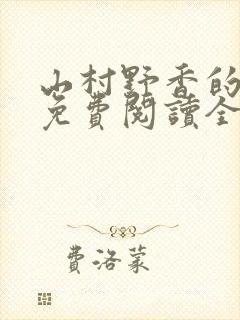 山村野香的
免費閱讀全
費洛蒙